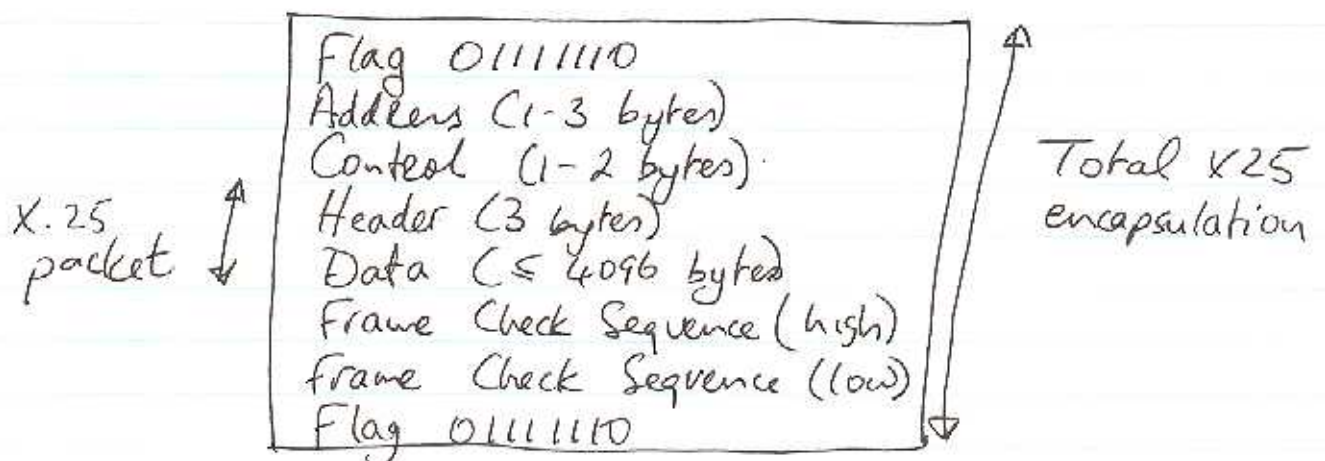 Flag 01111110
Address (1-3 bytes)
Control (1-2 bytes).
Header (3 bytes)
Data (≤ 4096 bytes)
Frame Check Sequence (high)
Frame Check Sequence (low)
Flag 01111110
X.25
packet
Total X25
encapsulation